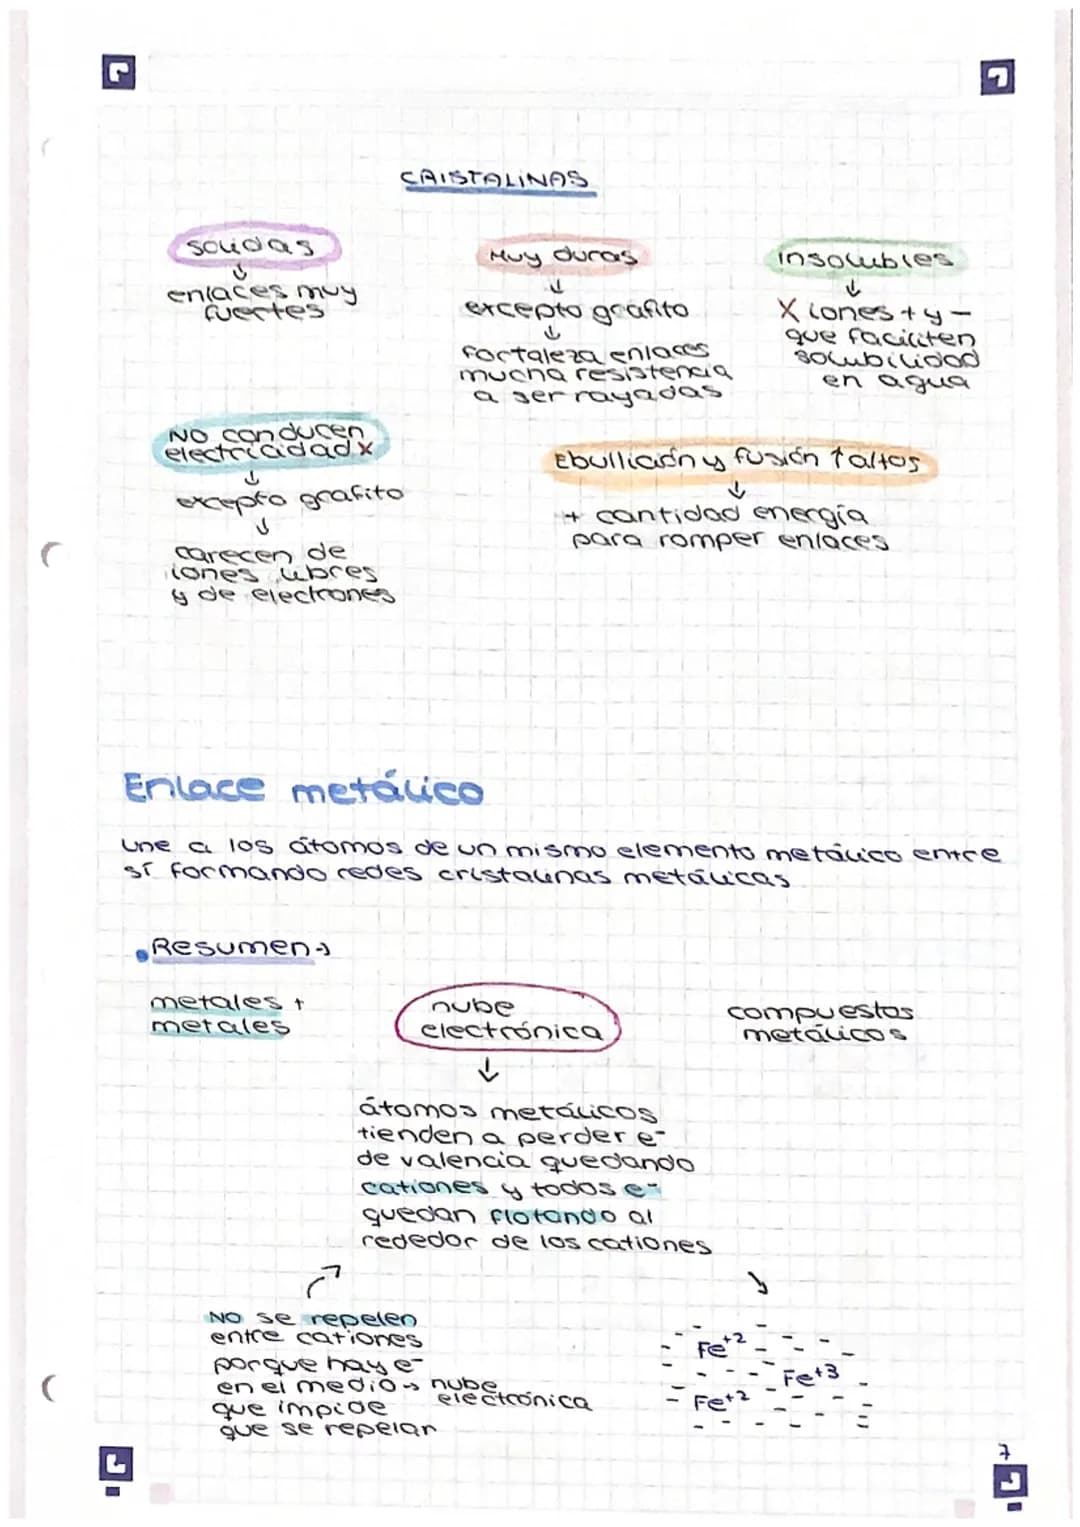 CRISTALINAS
sólidas
↓
enlaces muy
fuertes
Muy duras
↓
excepto grafito
↓
fortaleza enlaces
mucha resistencia
a ser rayadas
insolubles
↓
X iones + y -
que faciliten
solubilidad
en agua
NO conducen
electricidad x
↓
excepto grafito
↓
carecen de
iones libres
y de electrones
Ebullición y fusión ↑ altos
↓
+ cantidad energía
para romper enlaces
Enlace metálico
une a los átomos de un mismo elemento metálico entre
sí formando redes cristalinas metálicas
Resumen→
metales +
metales
nube
electrónica
compuestos
metálicos
↓
átomos metálicos
tienden a perder e-
de valencia quedando
cationes y todos e-
quedan flotando al
rededor de los cationes
NO se repelen
entre cationes
porque hay e-
en el medio → nube
electrónica
que impide
que se repelan
Fe+2
Fe+3
Fe+2
7